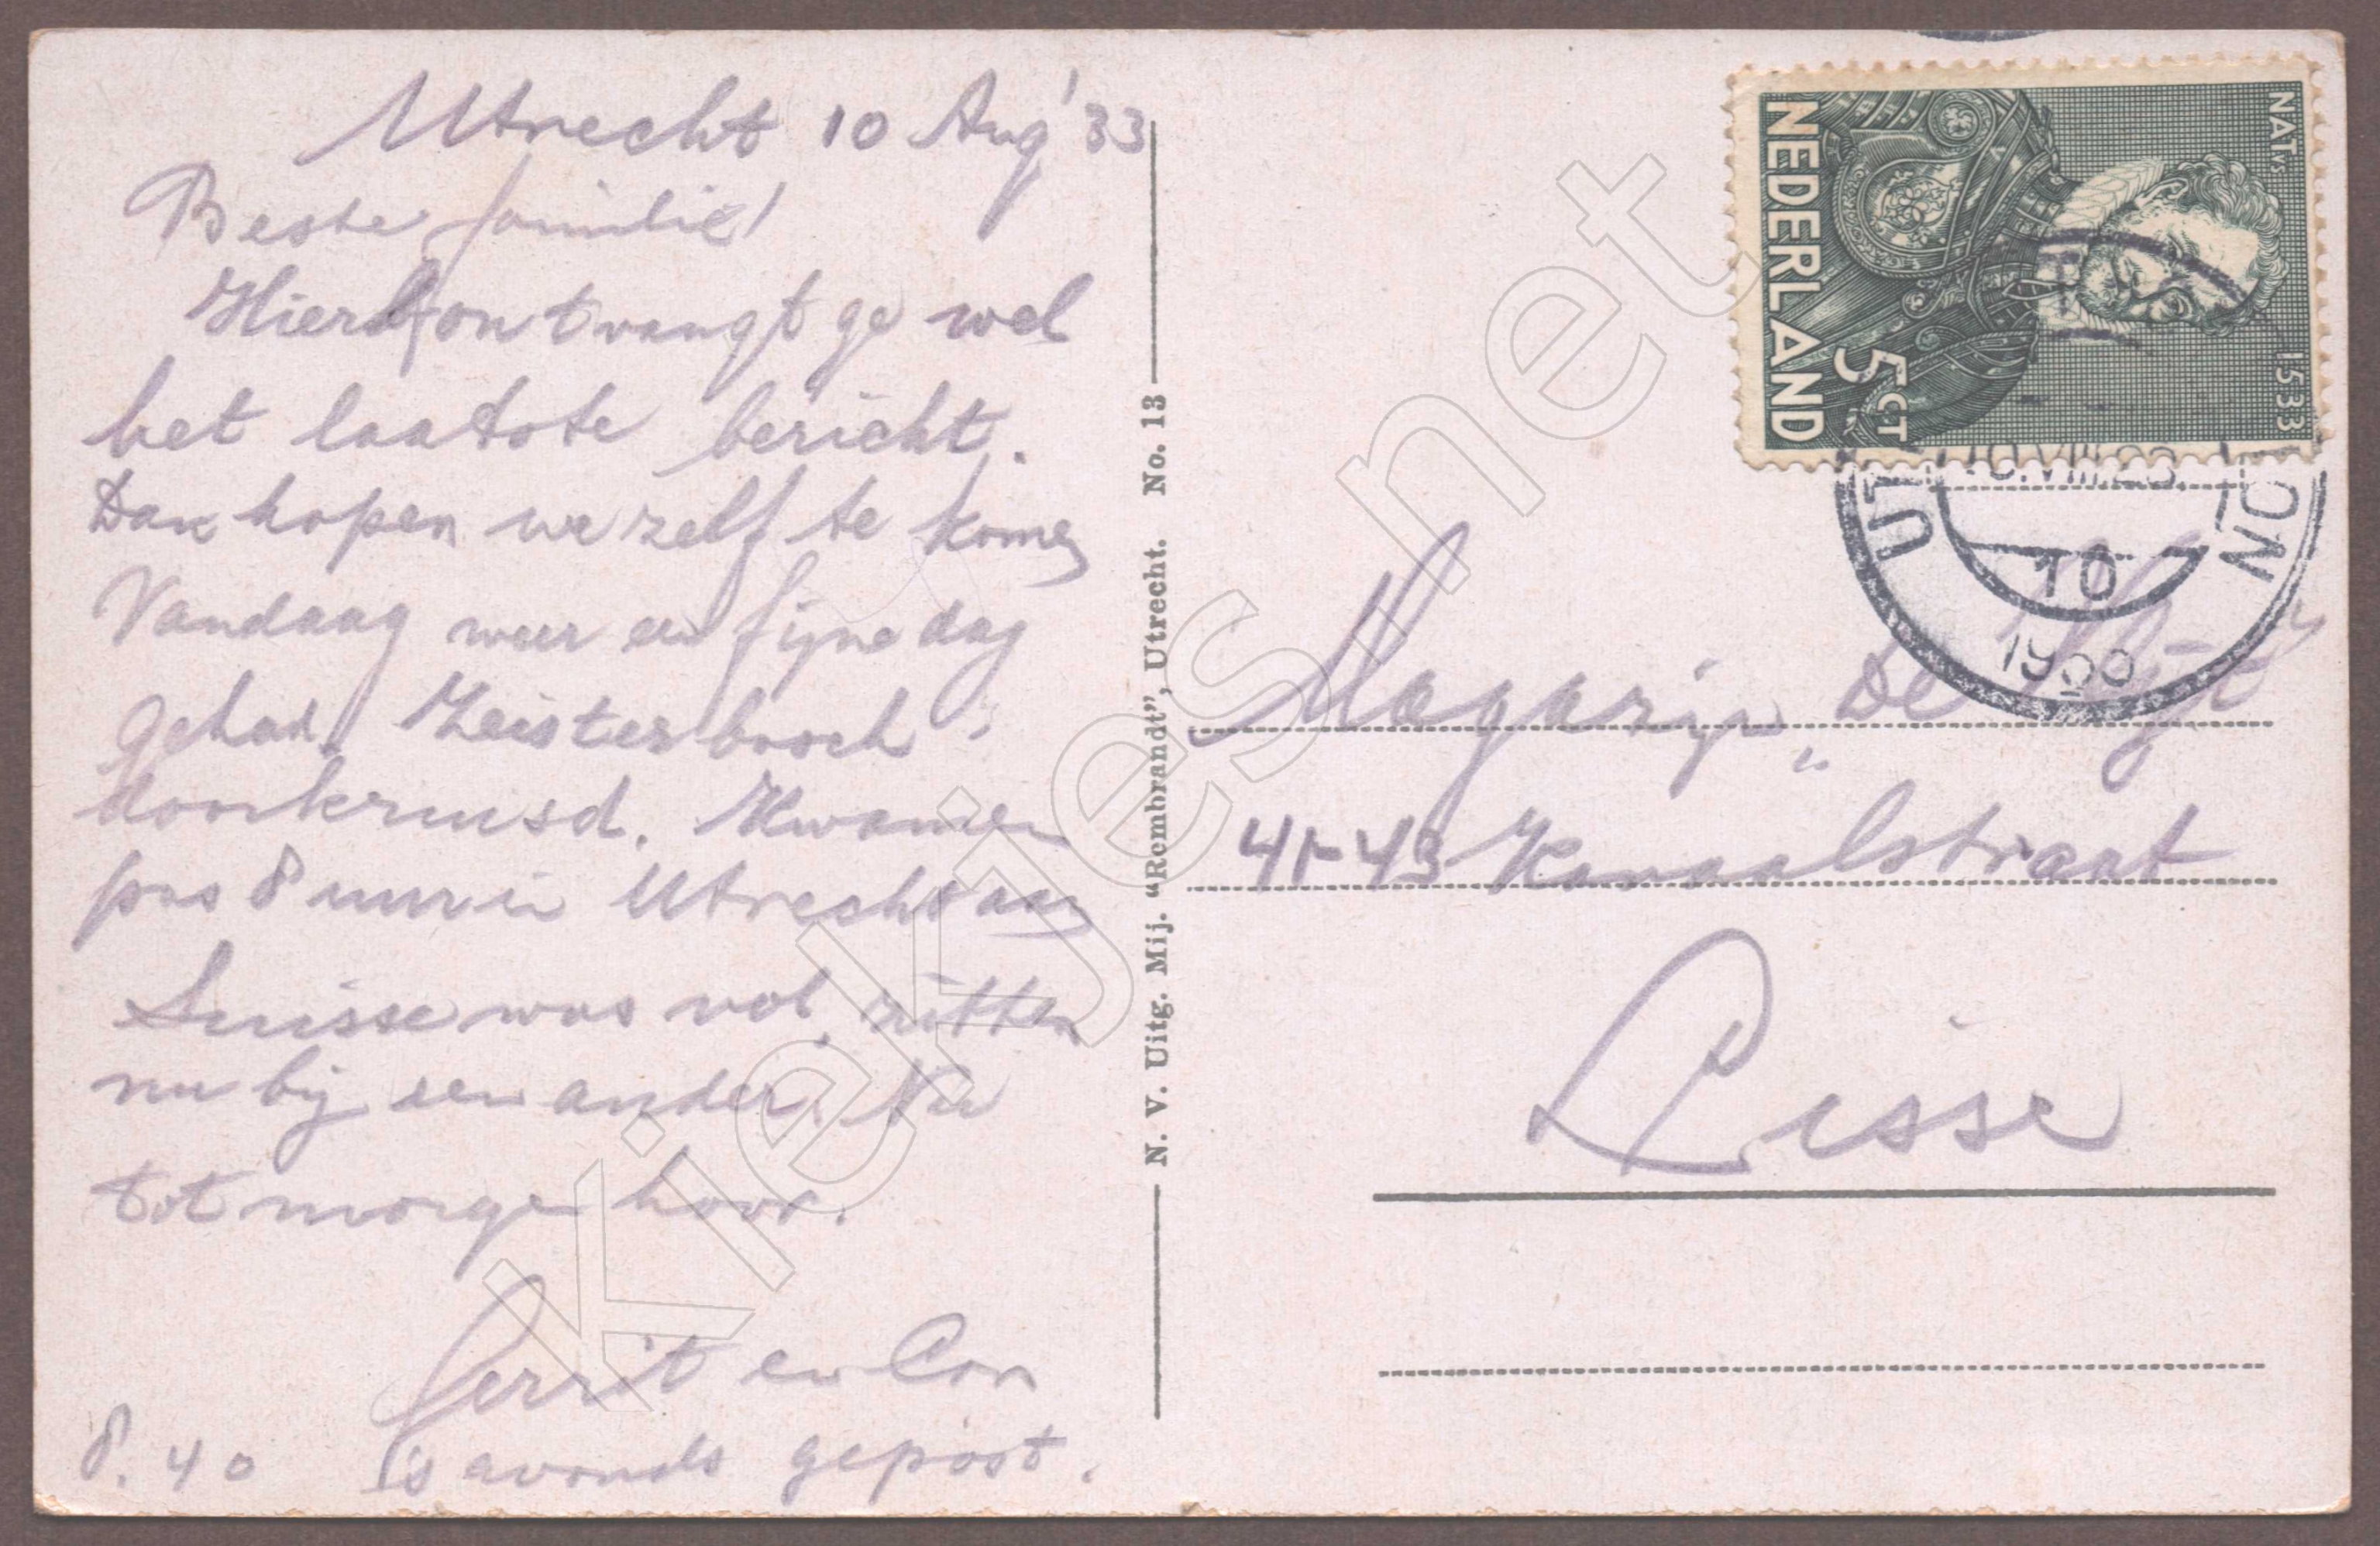 Utrecht 10 Aug '33
Beste familie!
Hierbij ontvangt ge wel
het laatste bericht.
Dan hopen we zelf te komen
Vandaag weer een fijne dag
gehad. Zeisterbosch
doorkruisd. Kwamen
pas 8 uur in Utrecht aan
Suisse was vol, zitten
nu bij een ander. Nu
tot morgen hoor.
Gerrit en Con
8.40 's avonds gepost.
N. V. Uitg. Mij. "Rembrandt", Utrecht. No. 13
NEDERLAND
5 CT
NAT. 1533
10.VIII
10
Magazijn „De
41-43 Kanaalstraat
Lisse
kiekjes net